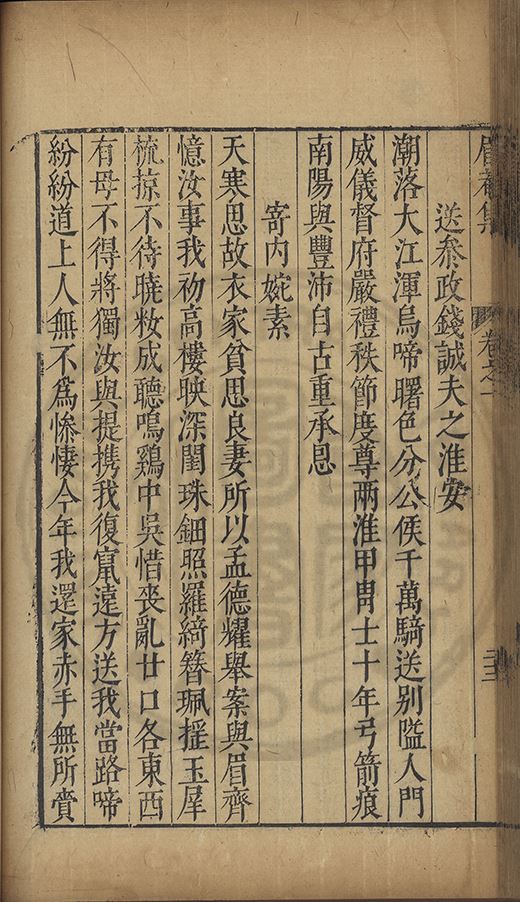 眉菴集 卷之一 二十三
送叅政錢誠夫之淮安
潮落大江渾烏啼曙色分公侯千萬騎送別隘人門
威儀督府嚴禮秩節度尊兩淮甲冑士十年弓箭痕
南陽與豐沛自古重承恩
寄内婉素
天寒思故衣家貧思良妻所以孟德耀舉案與眉齊
憶汝事我初高樓映深閨珠鈿照羅綺簪珮揺玉犀
梳掠不待曉粧成聽鳴雞中吳惜喪亂廿口各東西
有母不得將獨汝與提携我復竄遠方送我當路啼
紛紛道上人無不爲慘悽今年我還家赤手無所賫